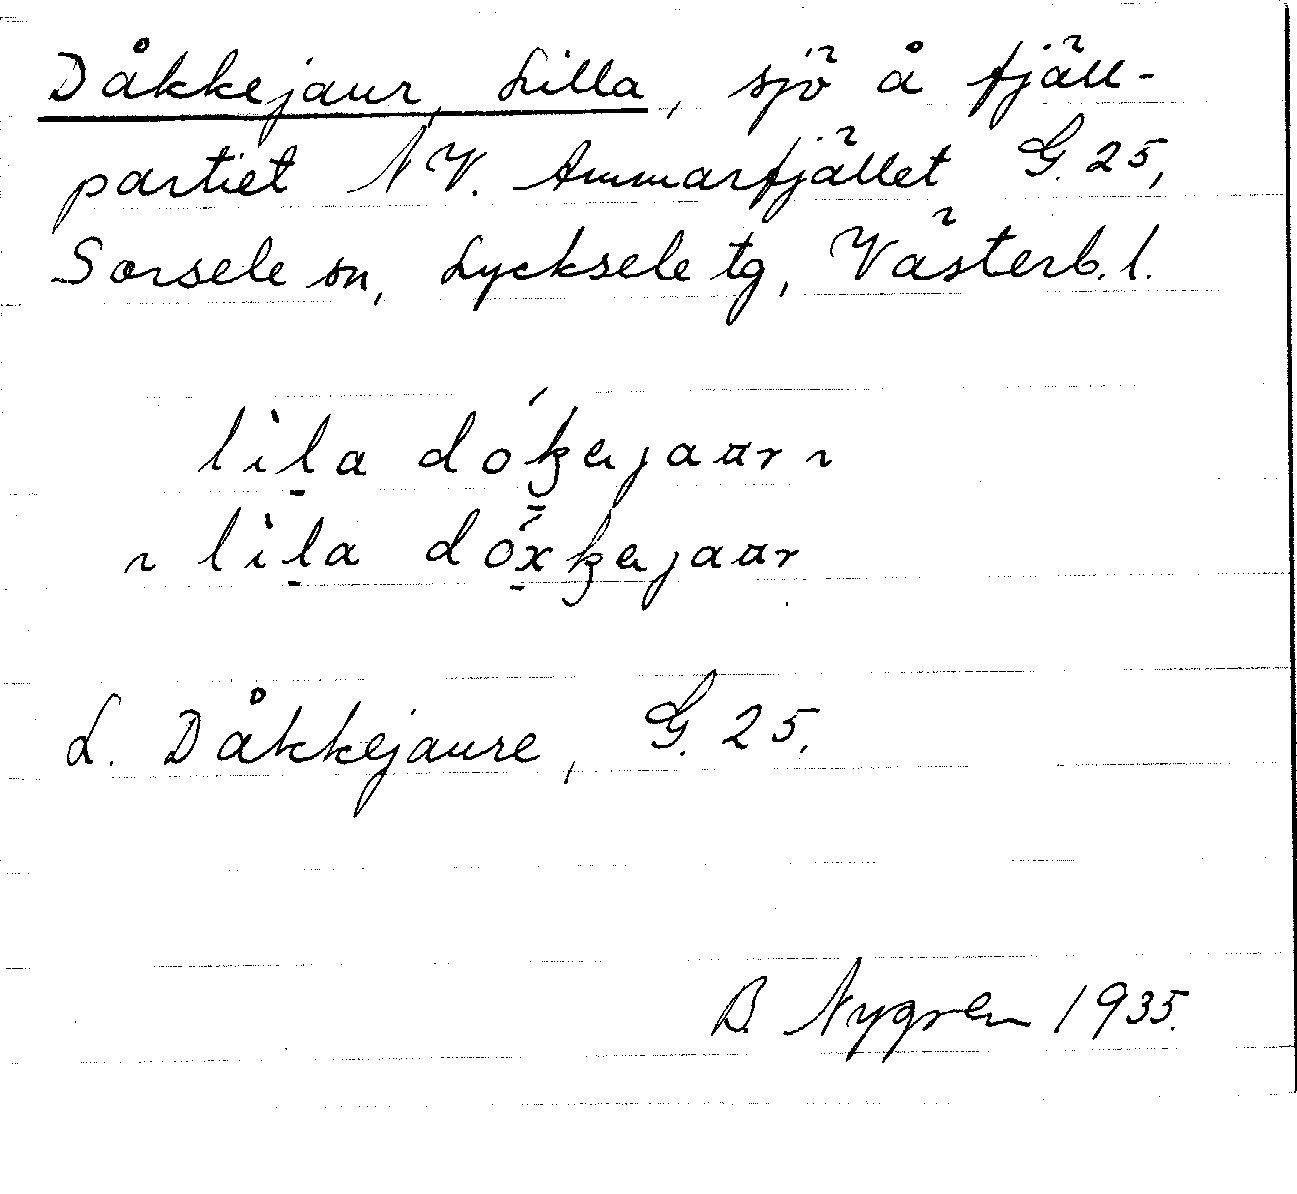 Dåkkejaur, Lilla, sjö å fjäll-
partiet NV. Ammarfjället G. 25,
Sorsele sn, Lycksele tg, Västerb. l.
lìl̠a
~ lìl̠a
L. Dåkkejaure, G. 25.
B. Nygren 1935.